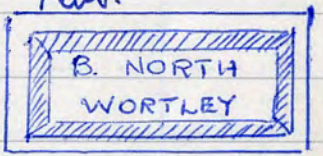 B. NORTH
WORTLEY